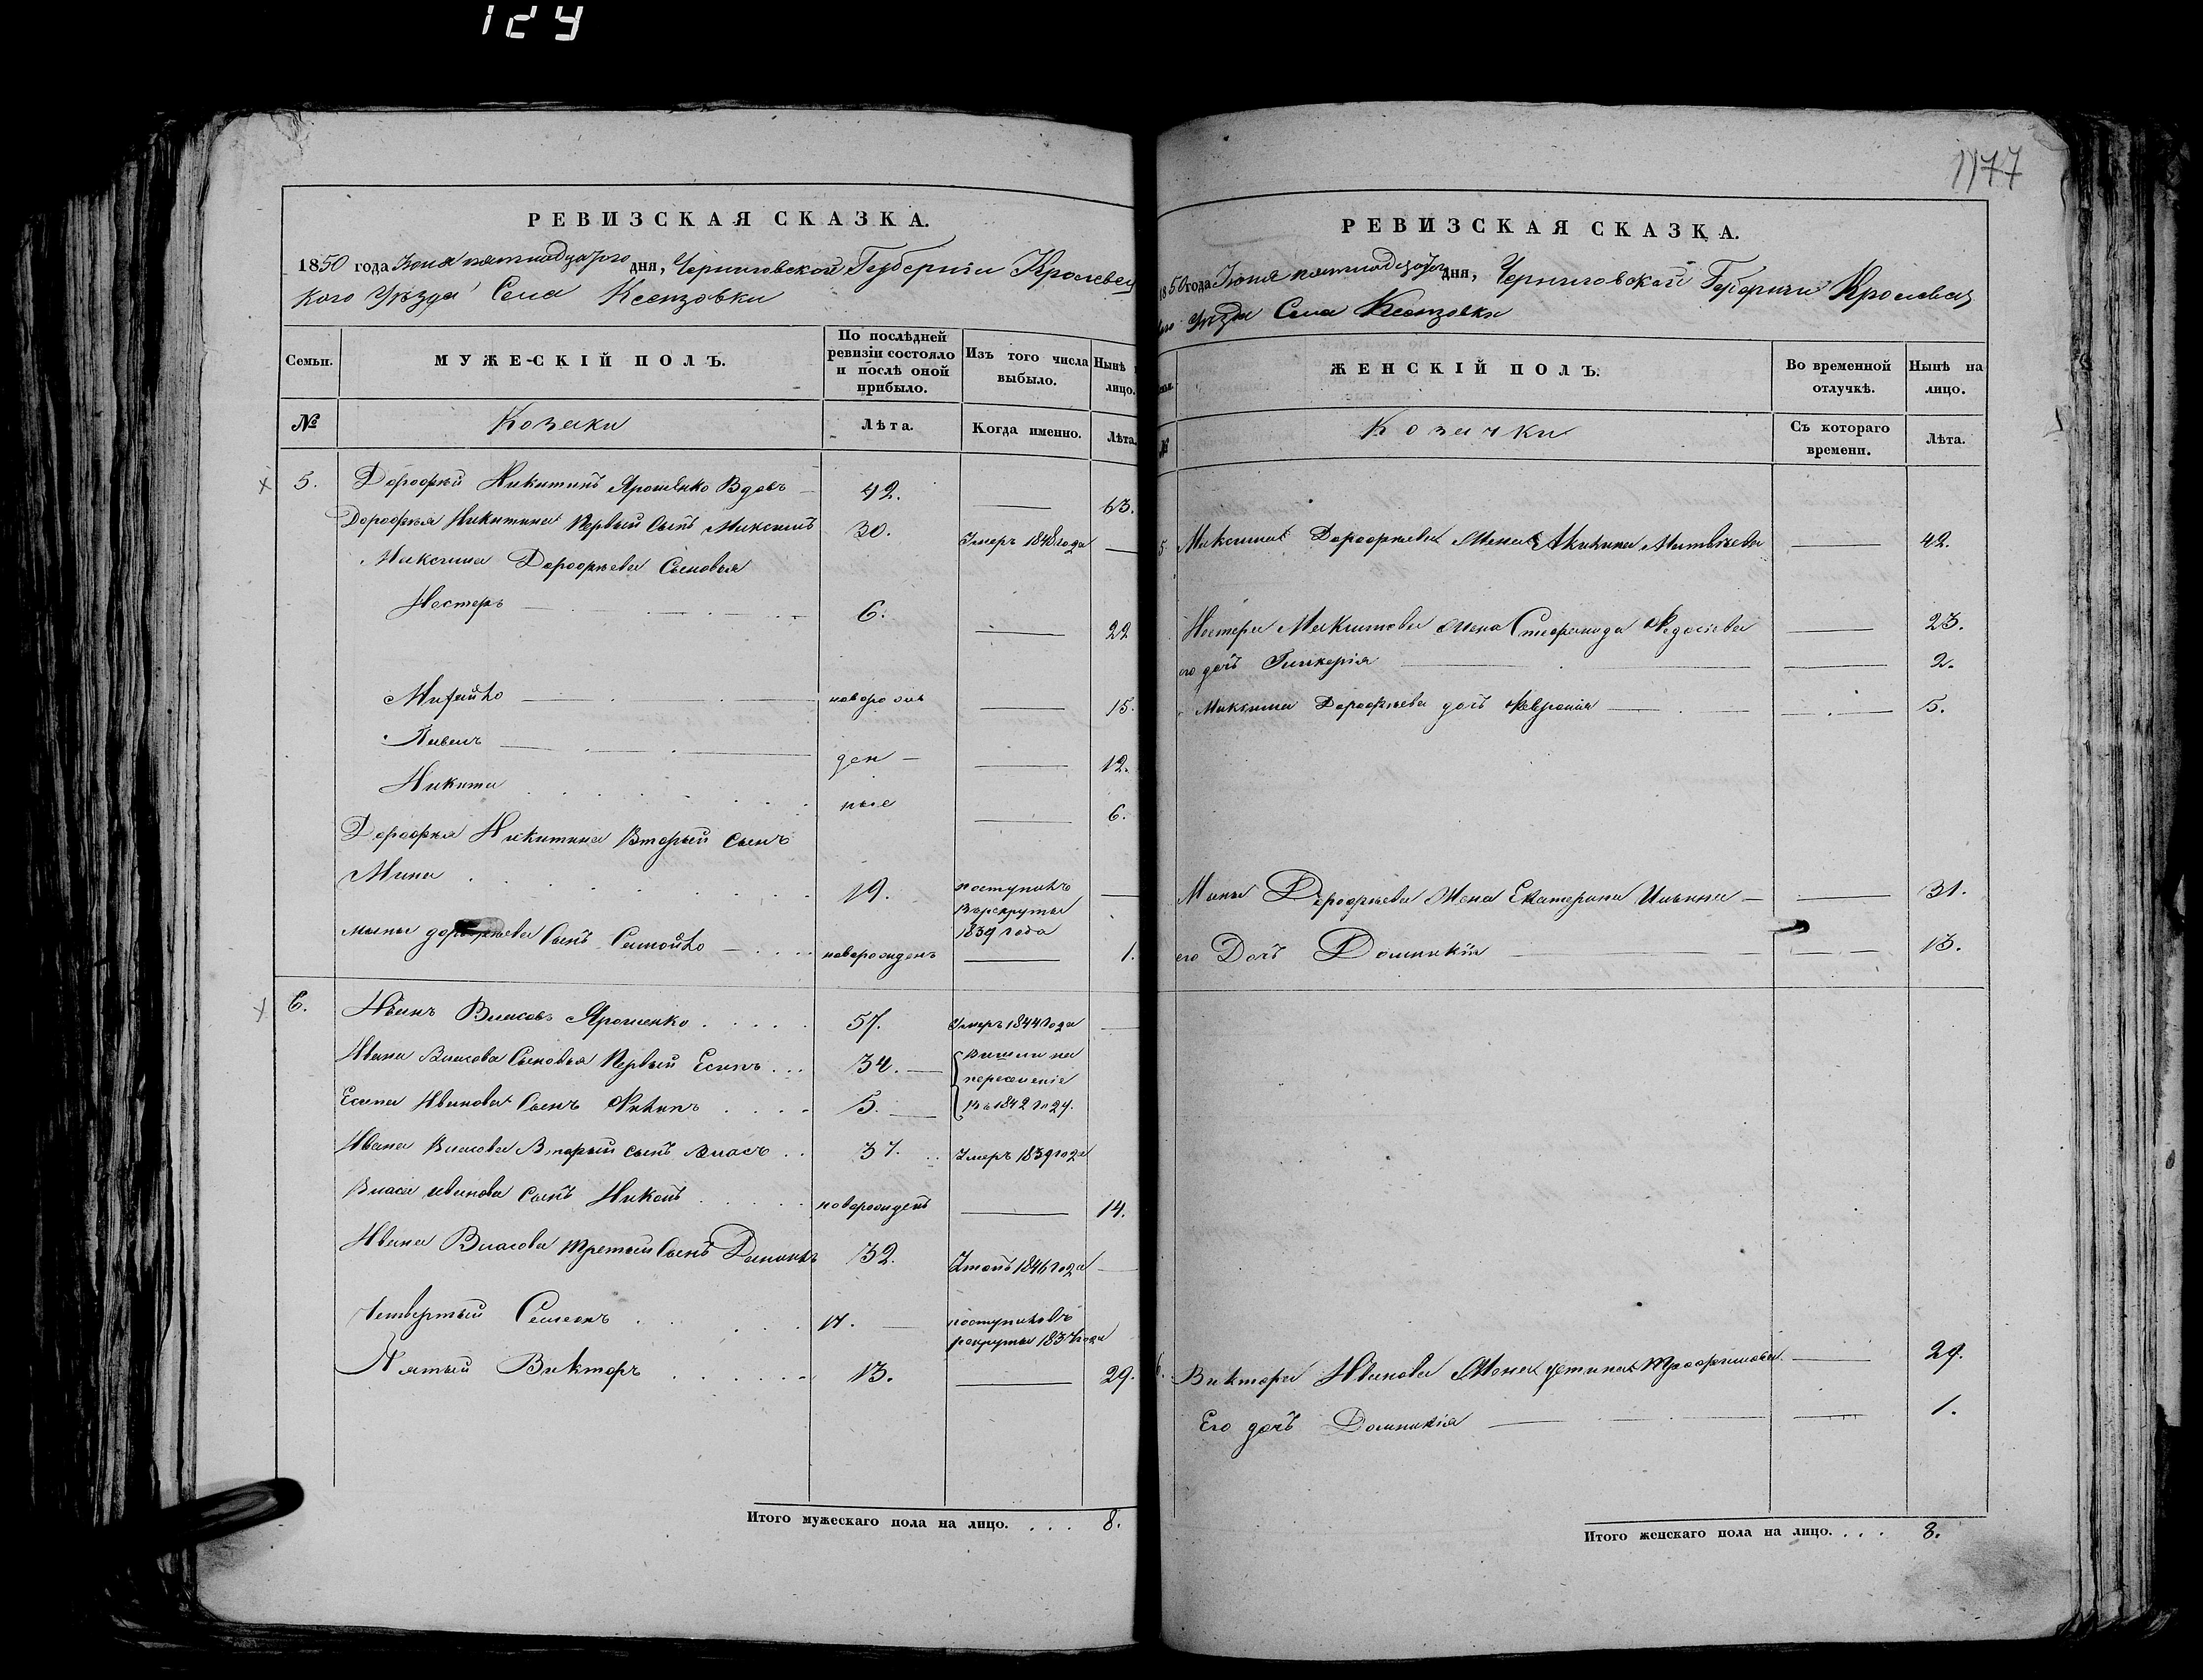 129
РЕВИЗСКАЯ СКАЗКА.
1850 года Іюня пятнадцатого дня, Черниговской Губерніи Кролевец
кого Уѣзда Села Ксензовки
Семьи.
МУЖЕСКІЙ ПОЛЪ.
По послѣдней ревизіи состояло и послѣ оной прибыло.
Изъ того числа выбыло.
Нынѣ лицо.
№
Козаки
Лѣта.
Когда именно.
Лѣта.
5. Дорофѣй Никитинъ Ярошенко Вдовъ 42. 63.
Дорофѣя Никитина Первый Сынъ Максимъ 30. Умеръ 1848 года
Максима Дорофѣева Сыновья
Нестеръ 6. 22
Михайло новорож 15.
Павелъ ден 12.
Никита ные 6.
Дорофѣя Никитина Вторый Сынъ
Мина 19. поступилъ
в рекруты
1839 года
мины дорофѣева Сынъ Самойло новорожденъ 1.
6. Иванъ Власовъ Ярошенко 57. Умеръ 1844 года
Ивана Власова Сыновья Первый Есипъ 34. Вышли на
переселеніе
Есипа Иванова Сынъ Филипъ 5. въ 1842 году.
Ивана Власова Вторый сынъ Власъ 37. Умеръ 1839 года
Власа иванова сынъ Никонъ новорожденъ 14.
Ивана Власова третій Сынъ Даніилъ 32. Утопъ 1846 года
Четвертый Семенъ 17. поступилъ въ
рекруты 1837 года
Пятый Викторъ 13. 29.
Итого мужескаго пола на лицо. . . . 8.
1177
РЕВИЗСКАЯ СКАЗКА.
1850 года Іюня пятнадцатого дня, Черниговской Губерніи Кролевец
кого Уѣзда Села Ксензовки
ЖЕНСКІЙ ПОЛЪ.
Во временной отлучкѣ.
Нынѣ на лицо.
№
Козачки
Съ котораго времени.
Лѣта.
5 Максима Дорофѣева Жена Акилина Матвѣева 42.
Нестера Максимова жена Стефанида Федосіева 23.
его дочь Гликерія 2.
Максима Дорофѣева дочь Феврония 5.
Мины Дорофѣева Жена Екатерина Ильина 31.
его Дочь Домникія 13.
6. Виктора Иванова Жена устина Трофимова 29.
Его дочь Домникія 1.
Итого женскаго пола на лицо. . . . 8.